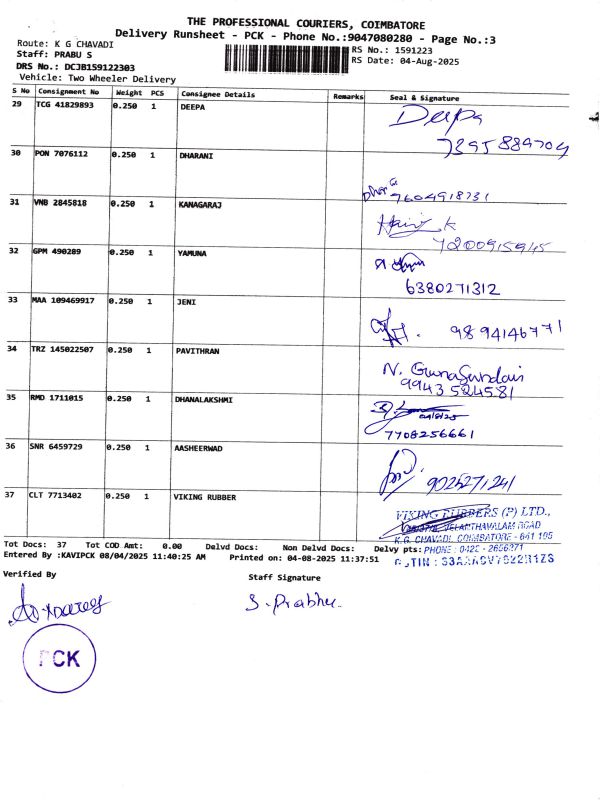 THE PROFESSIONAL COURIERS, COIMBATORE
Delivery Runsheet - PCK - Phone No.:9047080280 - Page No.:3
Route: K G CHAVADI
Staff: PRABU S
DRS No.: DCJB159122303
Vehicle: Two Wheeler Delivery
RS No.: 1591223
RS Date: 04-Aug-2025
S No Consignment No Weight PCS Consignee Details Remarks Seal & Signature
29 TCG 41829893 0.250 1 DEEPA Deepa
7395889704
30 PON 7076112 0.250 1 DHARANI
7604918731
31 VNB 2845818 0.250 1 KANAGARAJ
7200915945
32 GPM 490289 0.250 1 YAMUNA
6380271312
33 MAA 109469917 0.250 1 JENI
9894146771
34 TRZ 145022507 0.250 1 PAVITHRAN N. GunaSundari
9943524581
35 RMD 1711015 0.250 1 DHANALAKSHMI
7708256661
36 SNR 6459729 0.250 1 AASHEERWAD
9025271241
37 CLT 7713402 0.250 1 VIKING RUBBER VIKING RUBBERS (P) LTD.,
VELANTHAVALAM ROAD
K.G. CHAVADI, COIMBATORE - 641 105
Tot Docs: 37 Tot COD Amt: 0.00 Delvd Docs: Non Delvd Docs: Delvy pts: PHONE : 0422 - 2656271
Entered By :KAVIPCK 08/04/2025 11:40:25 AM Printed on: 04-08-2025 11:37:51
Verified By
Staff Signature
S. Prabhu.
PCK